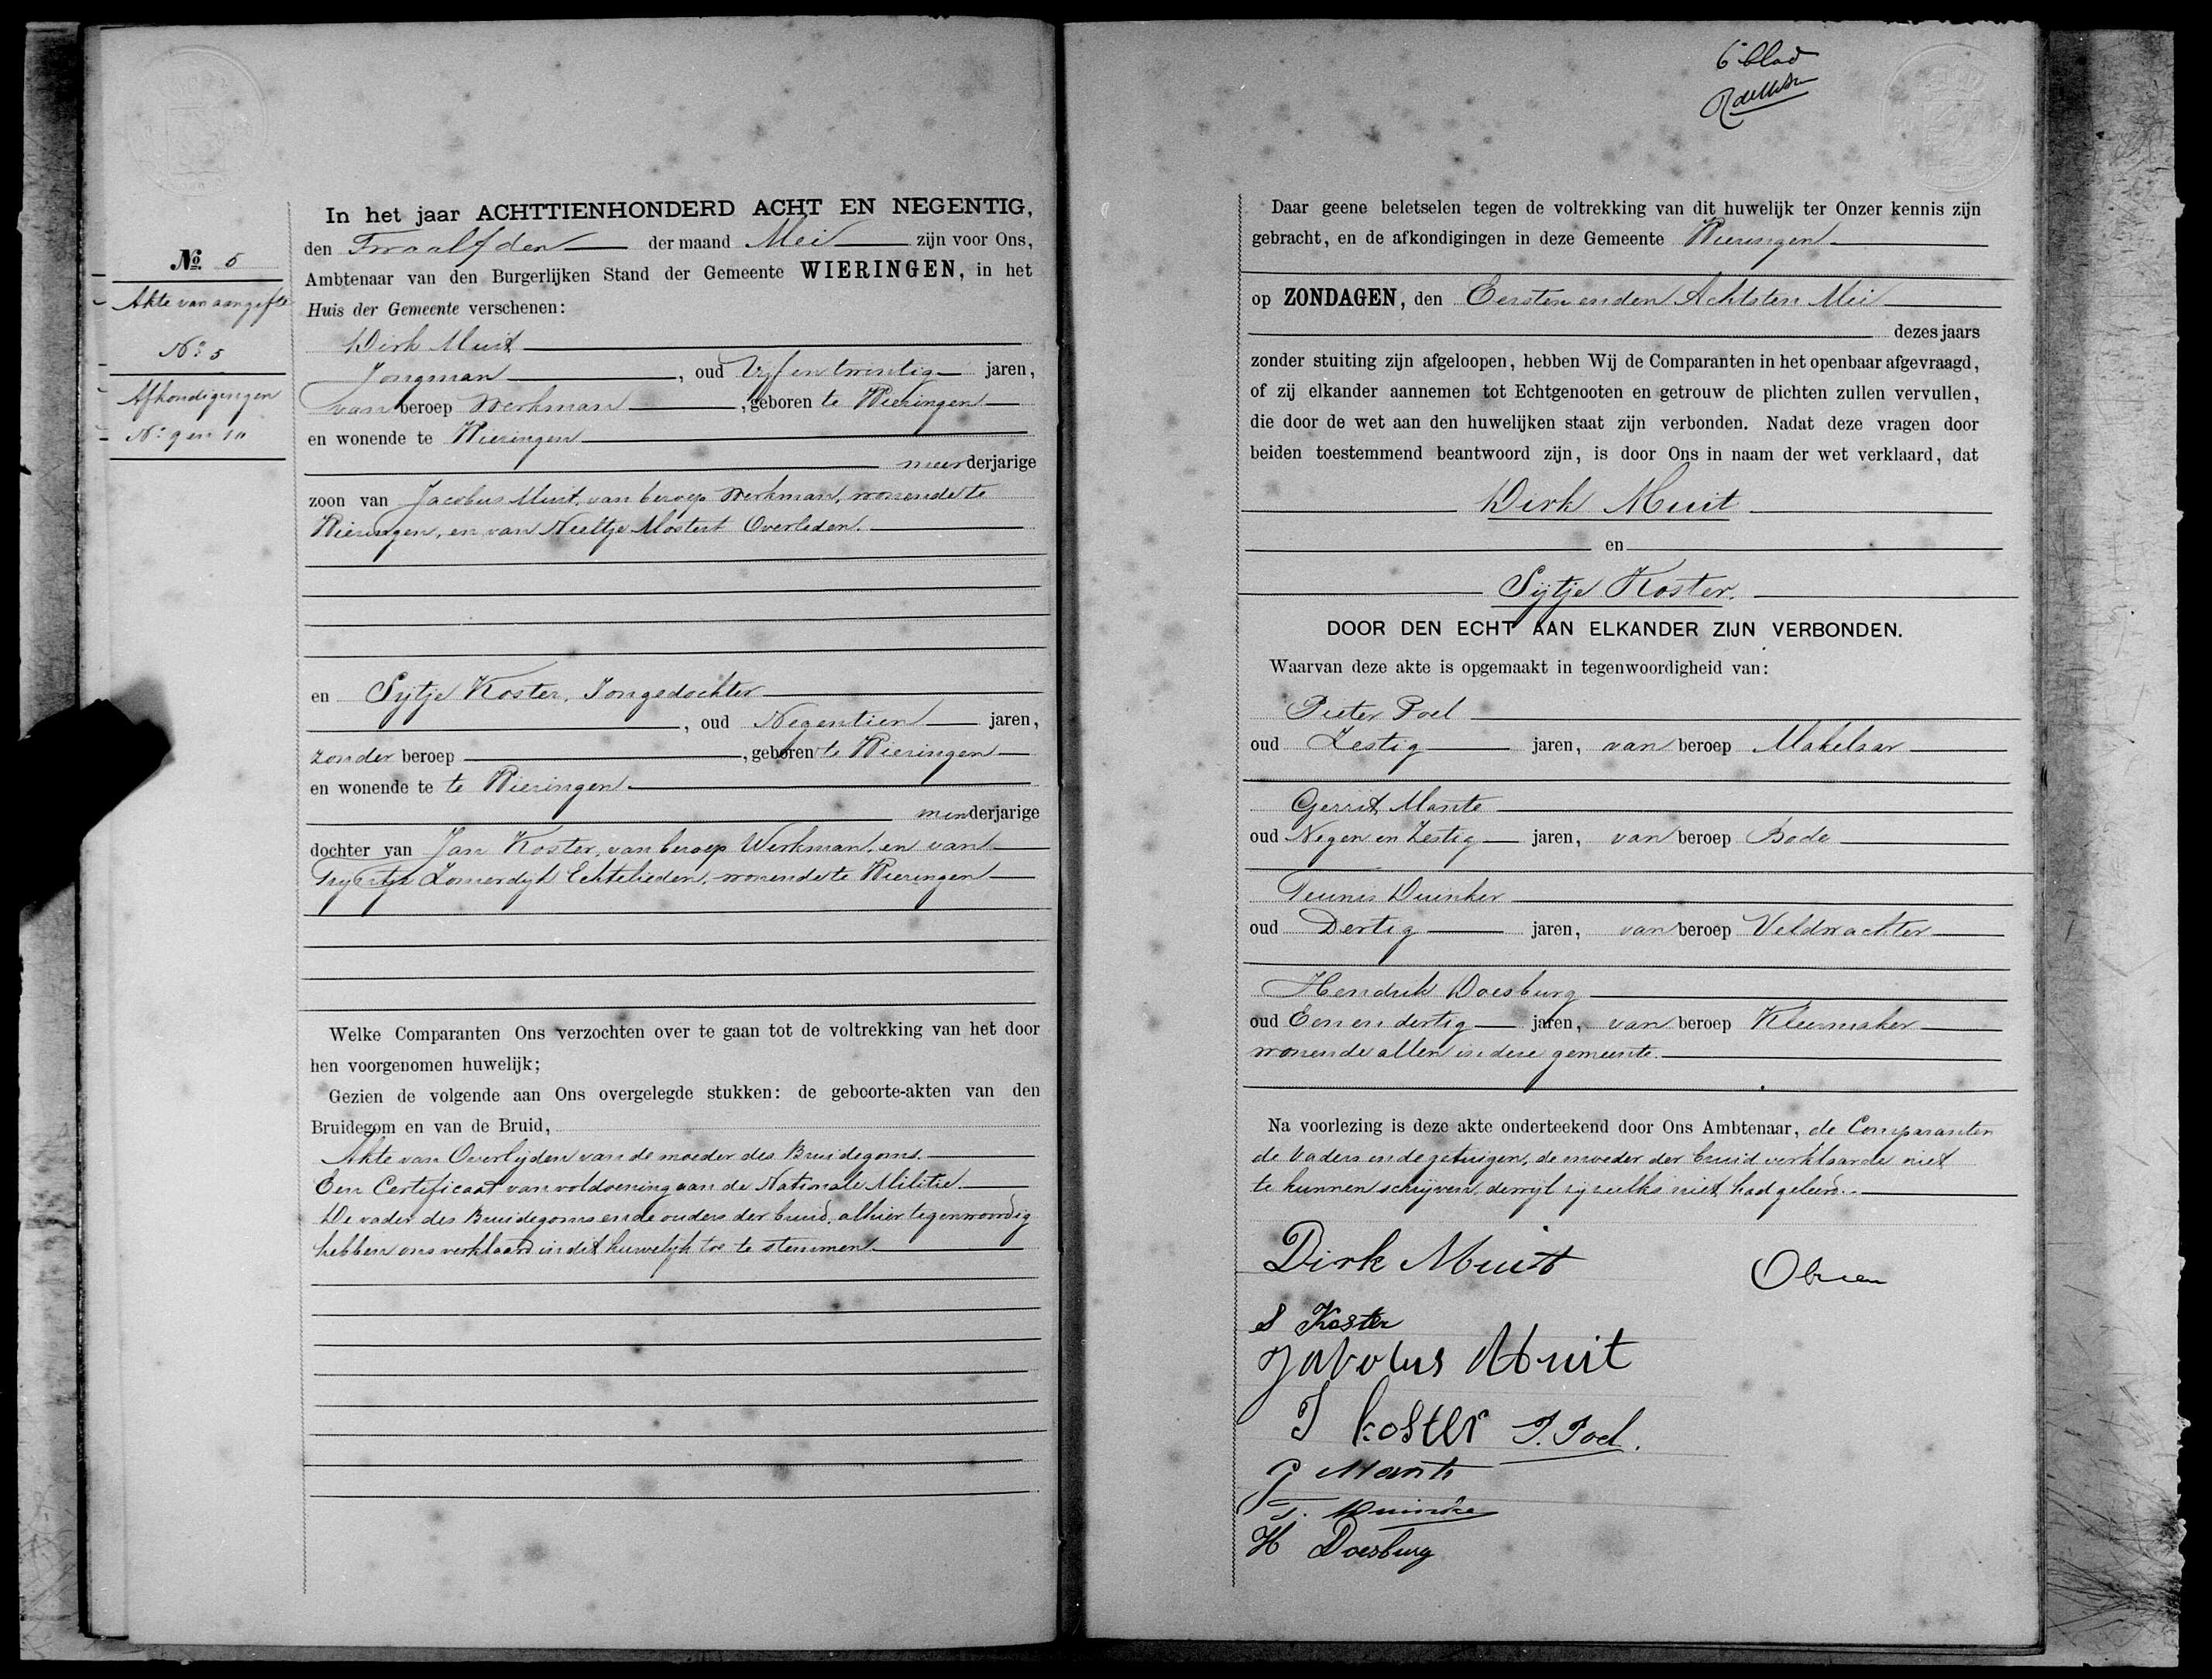 No. 5
Akte van aangifte
No. 5
Afkondigingen
No. 9 en 10
In het jaar ACHTTIENHONDERD ACHT EN NEGENTIG,
den Twaalfden der maand Mei zijn voor Ons,
Ambtenaar van den Burgerlijken Stand der Gemeente WIERINGEN, in het
Huis der Gemeente verschenen:
Dirk Muit
Jongman, oud Vijf en twintig jaren,
van beroep Werkman, geboren te Wieringen
en wonende te Wieringen
meerderjarige
zoon van Jacobus Muit, van beroep Werkman, wonende te
Wieringen, en van Neeltje Mostert Overleden.
en Sijtje Koster, Jongedochter
, oud Negentien jaren,
zonder beroep, geboren te Wieringen
en wonende te te Wieringen
minderjarige
dochter van Jan Koster, van beroep Werkman, en van
Trijntje Lomerdijk Echtelieden, wonende te Wieringen
Welke Comparanten Ons verzochten over te gaan tot de voltrekking van het door
hen voorgenomen huwelijk;
Gezien de volgende aan Ons overgelegde stukken: de geboorte-akten van den
Bruidegom en van de Bruid,
Akte van Overlijden van de moeder des Bruidegoms.
Een Certificaat van voldoening aan de Nationale Militie.
De vader des Bruidegoms en de ouders der bruid, alhier tegenwoordig
hebben ons verklaard in dit huwelijk toe te stemmen.
6e blad
Daar geene beletselen tegen de voltrekking van dit huwelijk ter Onzer kennis zijn
gebracht, en de afkondigingen in deze Gemeente Wieringen
op ZONDAGEN, den Eersten en den Achtsten Mei
dezes jaars
zonder stuiting zijn afgeloopen, hebben Wij de Comparanten in het openbaar afgevraagd,
of zij elkander aannemen tot Echtgenooten en getrouw de plichten zullen vervullen,
die door de wet aan den huwelijken staat zijn verbonden. Nadat deze vragen door
beiden toestemmend beantwoord zijn, is door Ons in naam der wet verklaard, dat
Dirk Muit
en
Sijtje Koster.
DOOR DEN ECHT AAN ELKANDER ZIJN VERBONDEN.
Waarvan deze akte is opgemaakt in tegenwoordigheid van:
Pieter Poel
oud Zestig jaren, van beroep Makelaar
Gerrit Mante
oud Negen en Zestig jaren, van beroep Bode
Teunis Duinker
oud Dertig jaren, van beroep Veldwachter
Hendrik Doesburg
oud Een en dertig jaren, van beroep Kleermaker
wonende allen in deze gemeente.
Na voorlezing is deze akte onderteekend door Ons Ambtenaar, de Comparanten
de vaders en de getuigen, de moeder der bruid verklaarde niet
te kunnen schrijven, dewijl zij zulks niet had geleerd.
Dirk Muit
S Koster
Jakobus Muit
J koster P. Poel.
G Mante
T. Duinker
H Doesburg